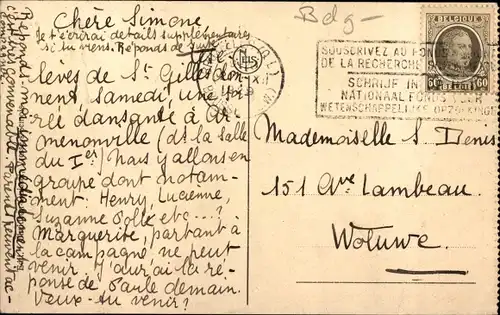 Chère Simone,
Je t'écrirai détails supplémentaires
si tu viens. Réponds de suite
lèves de St Gilles don
nent, samedi, une
rée dansante à Ar
menonville (ds la salle
du Ier) Nous y allons en
groupe dont notam-
ment: Henry, Lucienne,
Suzanne Polle etc...?
Marguerite, partant à
la campagne, ne peut
venir. J'aurai la ré-
ponse de Paule demain.
Veux-tu venir?
Réponds-moi immédiatement
c'est très convenable. Parents peuvent ac-
Belg-
BELGIQUE
60c
BELGIË
SOUSCRIVEZ AU FONDS
DE LA RECHERCHE
SCHRIJF IN
NATIONAAL FONDS
WETENSCHAPPELIJK OPZOEKINGEN
Mademoiselle S Denis
151 Ave Lambeau.
Woluwe.